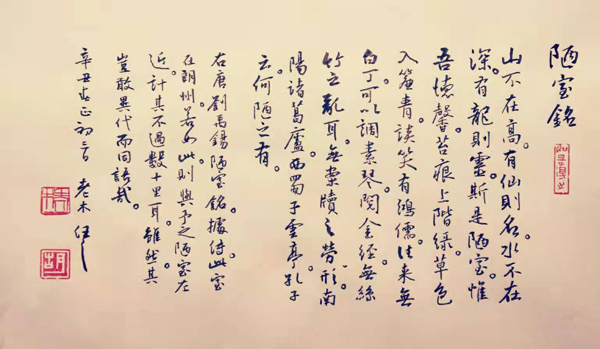 陋室銘
山不在高。有仙則名。水不在
深。有龍則靈。斯是陋室。惟
吾德馨。苔痕上階綠。草色
入簾青。談笑有鴻儒。往来無
白丁。可以調素琴。閱金經。無絲
竹之亂耳。無案牘之勞形。南
陽諸葛廬。西蜀子雲亭。孔子
云。何陋之有。
右唐劉禹錫陋室銘。據傳此室
在朗州。若如此則與予之陋室左
近。計其不過數十里耳。雖然其
豈敢異代而同語哉。
辛丑 正初 老木
胡